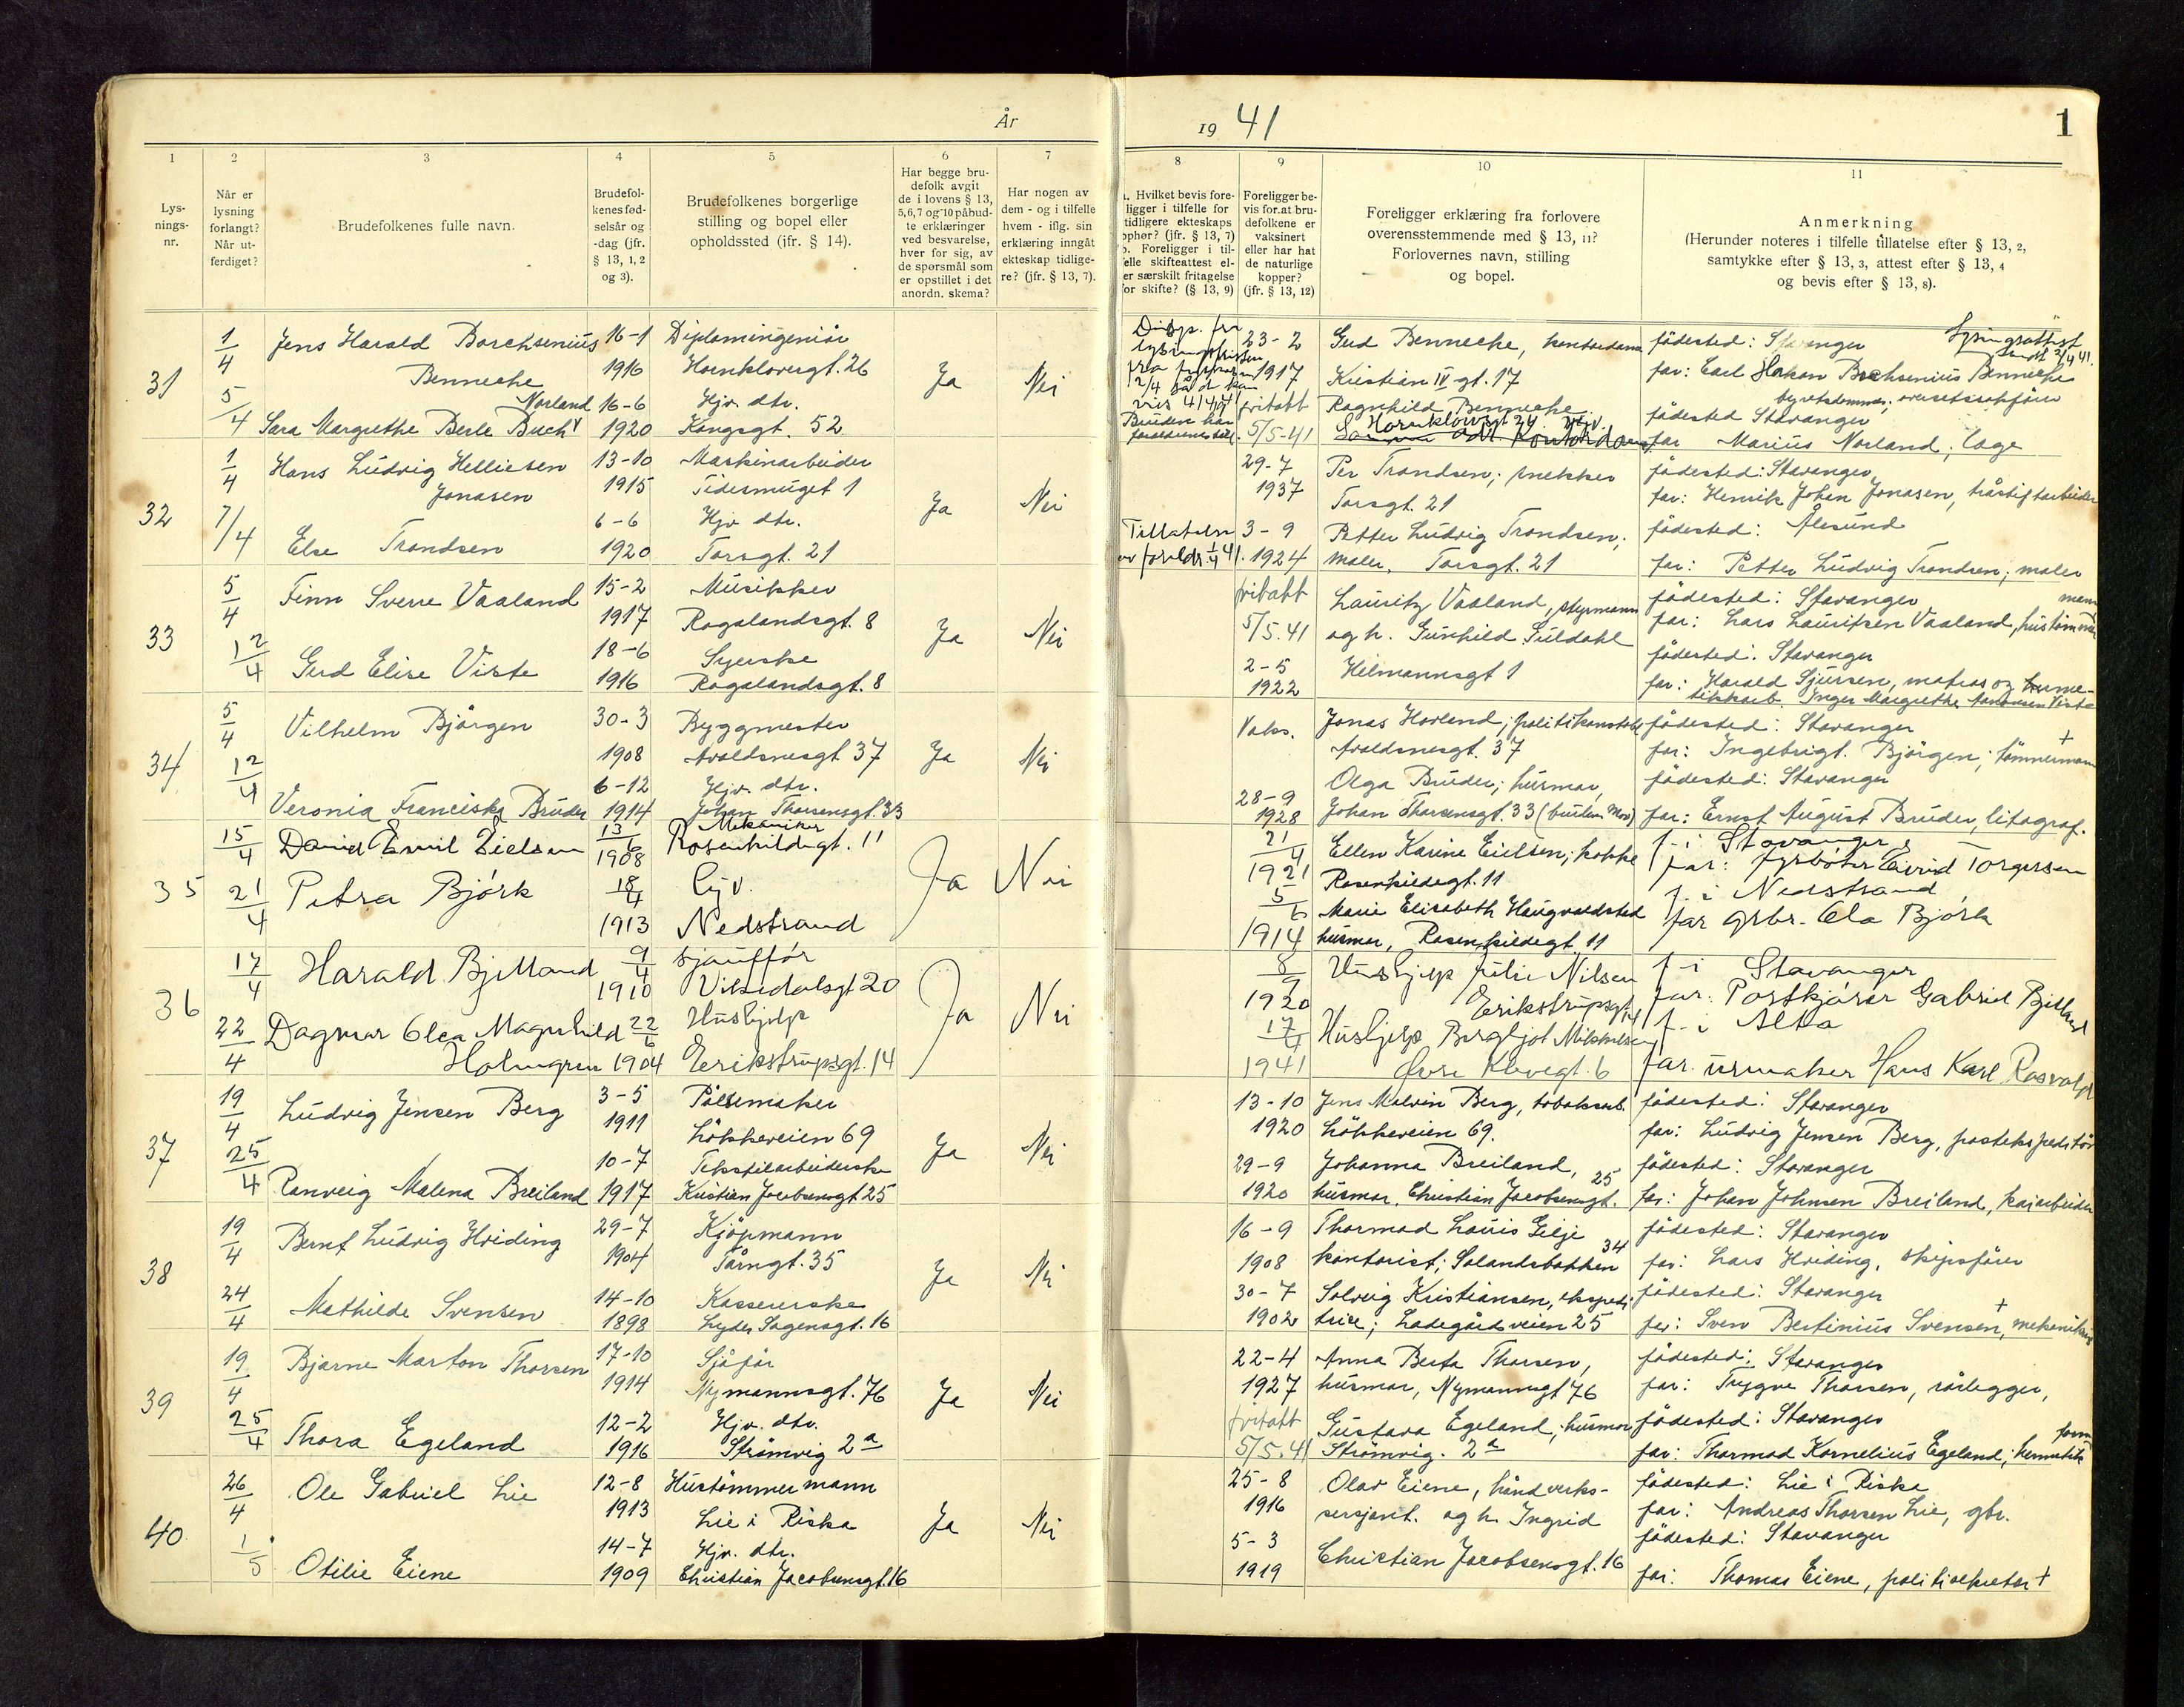 År
19 41
1
1
Lys-
nings-
nr.
2
Når er
lysning
forlangt?
Når ut-
ferdiget?
3
Brudefolkenes fulle navn.
4
Brudefol-
kenes fød-
selsår og
-dag (jfr.
§ 13, 1, 2
og 3).
5
Brudefolkenes borgerlige
stilling og bopel eller
opholdssted (ifr. § 14).
6
Har begge bru-
defolk avgit
de i lovens § 13,
5,6,7 og 10 påbud-
te erklæringer
ved besvarelse,
hver for sig, av
de spørsmål som
er opstillet i det
anordn. skema?
7
Har nogen av
dem - og i tilfelle
hvem - iflg. sin
erklæring inngått
ekteskap tidlige-
re? (jfr. § 13, 7).
8
. Hvilket bevis fore-
ligger i tilfelle for
tidligere ekteskaps
ophør? (jfr. § 13, 7)
. Foreligger i til-
elle skifteattest el-
er særskilt fritagelse
or skifte? (§ 13, 9)
9
Foreligger be-
vis for at bru-
defolkene er
vaksinert
eller har hat
de naturlige
kopper?
(jfr. § 13, 12)
10
Foreligger erklæring fra forlovere
overensstemmende med § 13, 11?
Forlovernes navn, stilling
og bopel.
11
Anmerkning
(Herunder noteres i tilfelle tillatelse efter § 13, 2,
samtykke efter § 13, 3, attest efter § 13, 4
og bevis efter § 13, 8).
31
1/4
5/4
Jens Harald Borchsenius
Bennecke
Norland
Sara Margrethe Berle Buch
16-1
1916
16-6
1920
Diplomingeniør
Hornklovesgt. 26
Hjv. dtr.
Kongsgt. 52
Ja
Nei
Disp. fra
lysningsfristen
23-2
1917
fritatt
5/5-41
Gud Bennecke, kontordame
Kristian IV gt. 17
Ragnhild Bennecke
Hornklovsgt 24
fødested: Stavanger
far: Carl Hakon Borchsenius Bennecke
fødested Stavanger
far Marius Norland; læge
32
1/4
7/4
Hans Ludvig Helliesen
Jonasen
Else Trondsen
13-10
1915
6-6
1920
Maskinarbeider
Tidesmuget 1
Hjv. dtr.
Torsgt. 21
Ja
Nei
Tillatelse
av foreldr. 1/4 41.
29-7
1937
3-9
1924
Per Trondsen; snekker
Torsgt. 21
Petter Ludvig Trondsen;
maler, Torsgt. 21
fødested: Stavanger
far: Henrik Johan Jonasen, tråstiftarbeider
fødested: Ålesund
far: Petter Ludvig Trondsen; maler
33
5/4
12/4
Finn Sverre Vaaland
Gerd Elise Viste
15-2
1917
18-6
1916
Musikker
Rogalandsgt. 8
Syerske
Rogalandsgt. 8
Ja
Nei
fritatt
5/5.41
2-5
1922
Lauritz Vaaland, styrmann
og h. Gunhild Suldahl
Hilmannsgt 1
fødested: Stavanger
far: Lars Lauritsen Vaaland, hustømmer
mann
fødested: Stavanger
far: Harald Sjursen, matros og
Inger Margrethe Viste
34
5/4
12/4
Vilhelm Bjørgen
Veronia Franciska Bruder
30-3
1908
6-12
1914
Byggmester
Avaldsnesgt 37
Hjv. dtr.
Johan Thorsensgt. 33
Ja
Nei
Vaks.
28-9
1928
Jonas Hovland; politikonstabel
Avaldsnesgt. 37
Olga Bruder; husmor,
Johan Thorsensgt. 33 (brudens Mor)
fødested: Stavanger
far: Ingebrigt Bjørgen; tømmermann +
fødested: Stavanger
far: Ernst August Bruder, litograf.
35
15/4
21/4
David Emil Eielsen
Petra Bjórk
13/6
1908
18/4
1913
Mekaniker
Rosenkildegt. 11
hjv.
Nedstrand
Ja
Nei
21/4
1921
5/6
1914
Ellen Karine Eielsen; kokke
Rosenkildegt. 11
Marie Elisabeth Haugvaldstad
husmor, Rosenkildegt. 11
f. i Stavanger
far: fyrbøter Eivind Torgersen
f. i Nedstrand
far grbr. Ola Bjórk
36
17/4
22/4
Harald Bjelland
Dagmar Olea Magnhild
Holmgren
9/4
1910
22/6
1904
Sjauffór
Vikedalsgt 20
Hushjelp
Erikstrupsgt. 14
Ja
Nei
8/9
1920
17/4
1941
Hushjelp Julie Nilsen
Erikstrupsgt 14
Hushjelp Bergljot Mikkelsen
Øvre Klevegt. 6
f. i Stavanger
far: Postkjórer Gabriel Bjelland
f. i Alta
far. urmaker Hans Karl
37
19/4
25/4
Ludvig Jensen Berg
Ranveig Malena Breiland
3-5
1911
10-7
1917
Pølsemaker
Løkkeveien 69
Tekstilarbeiderske
Kristian Jacobsensgt 25
Ja
Nei
13-10
1920
29-9
1920
Jens Malvin Berg, tobaksarb.
Løkkeveien 69.
Johanna Breiland,
husmor, Christian Jacobsensgt. 25
fødested: Stavanger
far: Ludvig Jensen Berg, postekspeditør
fødested: Stavanger
far: Johan Johnsen Breiland, kaiarbeider
38
19/4
24/4
Bernt Ludvig Hviding
Mathilde Svensen
29-7
1904
14-10
1898
Kjøpmann
Tårngt. 35
Kassererske
Lyder Sagensgt. 16
Ja
Nei
16-9
1908
30-7
1902
Thormod Louis Gilje
kontorist; Solandsbakken 34
Solveig Kristiansen, ekspedi-
trise; Ladegårdsveien 25
fødested: Stavanger
far: Lars Hviding, skipsfører
fødested: Stavanger
far: Sven Bertinius Svensen, mekaniker +
39
19/4
25/4
Bjarne Marton Thorsen
Thora Egeland
17-10
1914
12-2
1916
Sjåfør
Nymannsgt. 76
Hjv. dtr.
Strømvig 2a
Ja
Nei
22-4
1927
fritatt
5/5.41
Anna Berta Thorsen,
husmor, Nymannsgt 76
Gustava Egeland, husmor
Strømvig. 2a
fødested: Stavanger
far: Trygve Thorsen, rørlegger,
fødested: Stavanger
far: Thormod Kornelius Egeland; hermetikk
form
40
26/4
1/5
Ole Gabriel Lie
Otilie Eiene
12-8
1913
14-7
1909
Hustømmermann
Lie i Riska
Hjv. dtr.
Christian Jacobsensgt. 16
Ja
Nei
25-8
1916
5-3
1919
Olav Eiene, håndverks-
sersjant. og h. Ingrid
Christian Jacobsensgt. 16
fødested: Lie i Riska
far: Andreas Thorsen Lie, gbr.
fødested: Stavanger
far: Thomas Eiene, politisekretær +